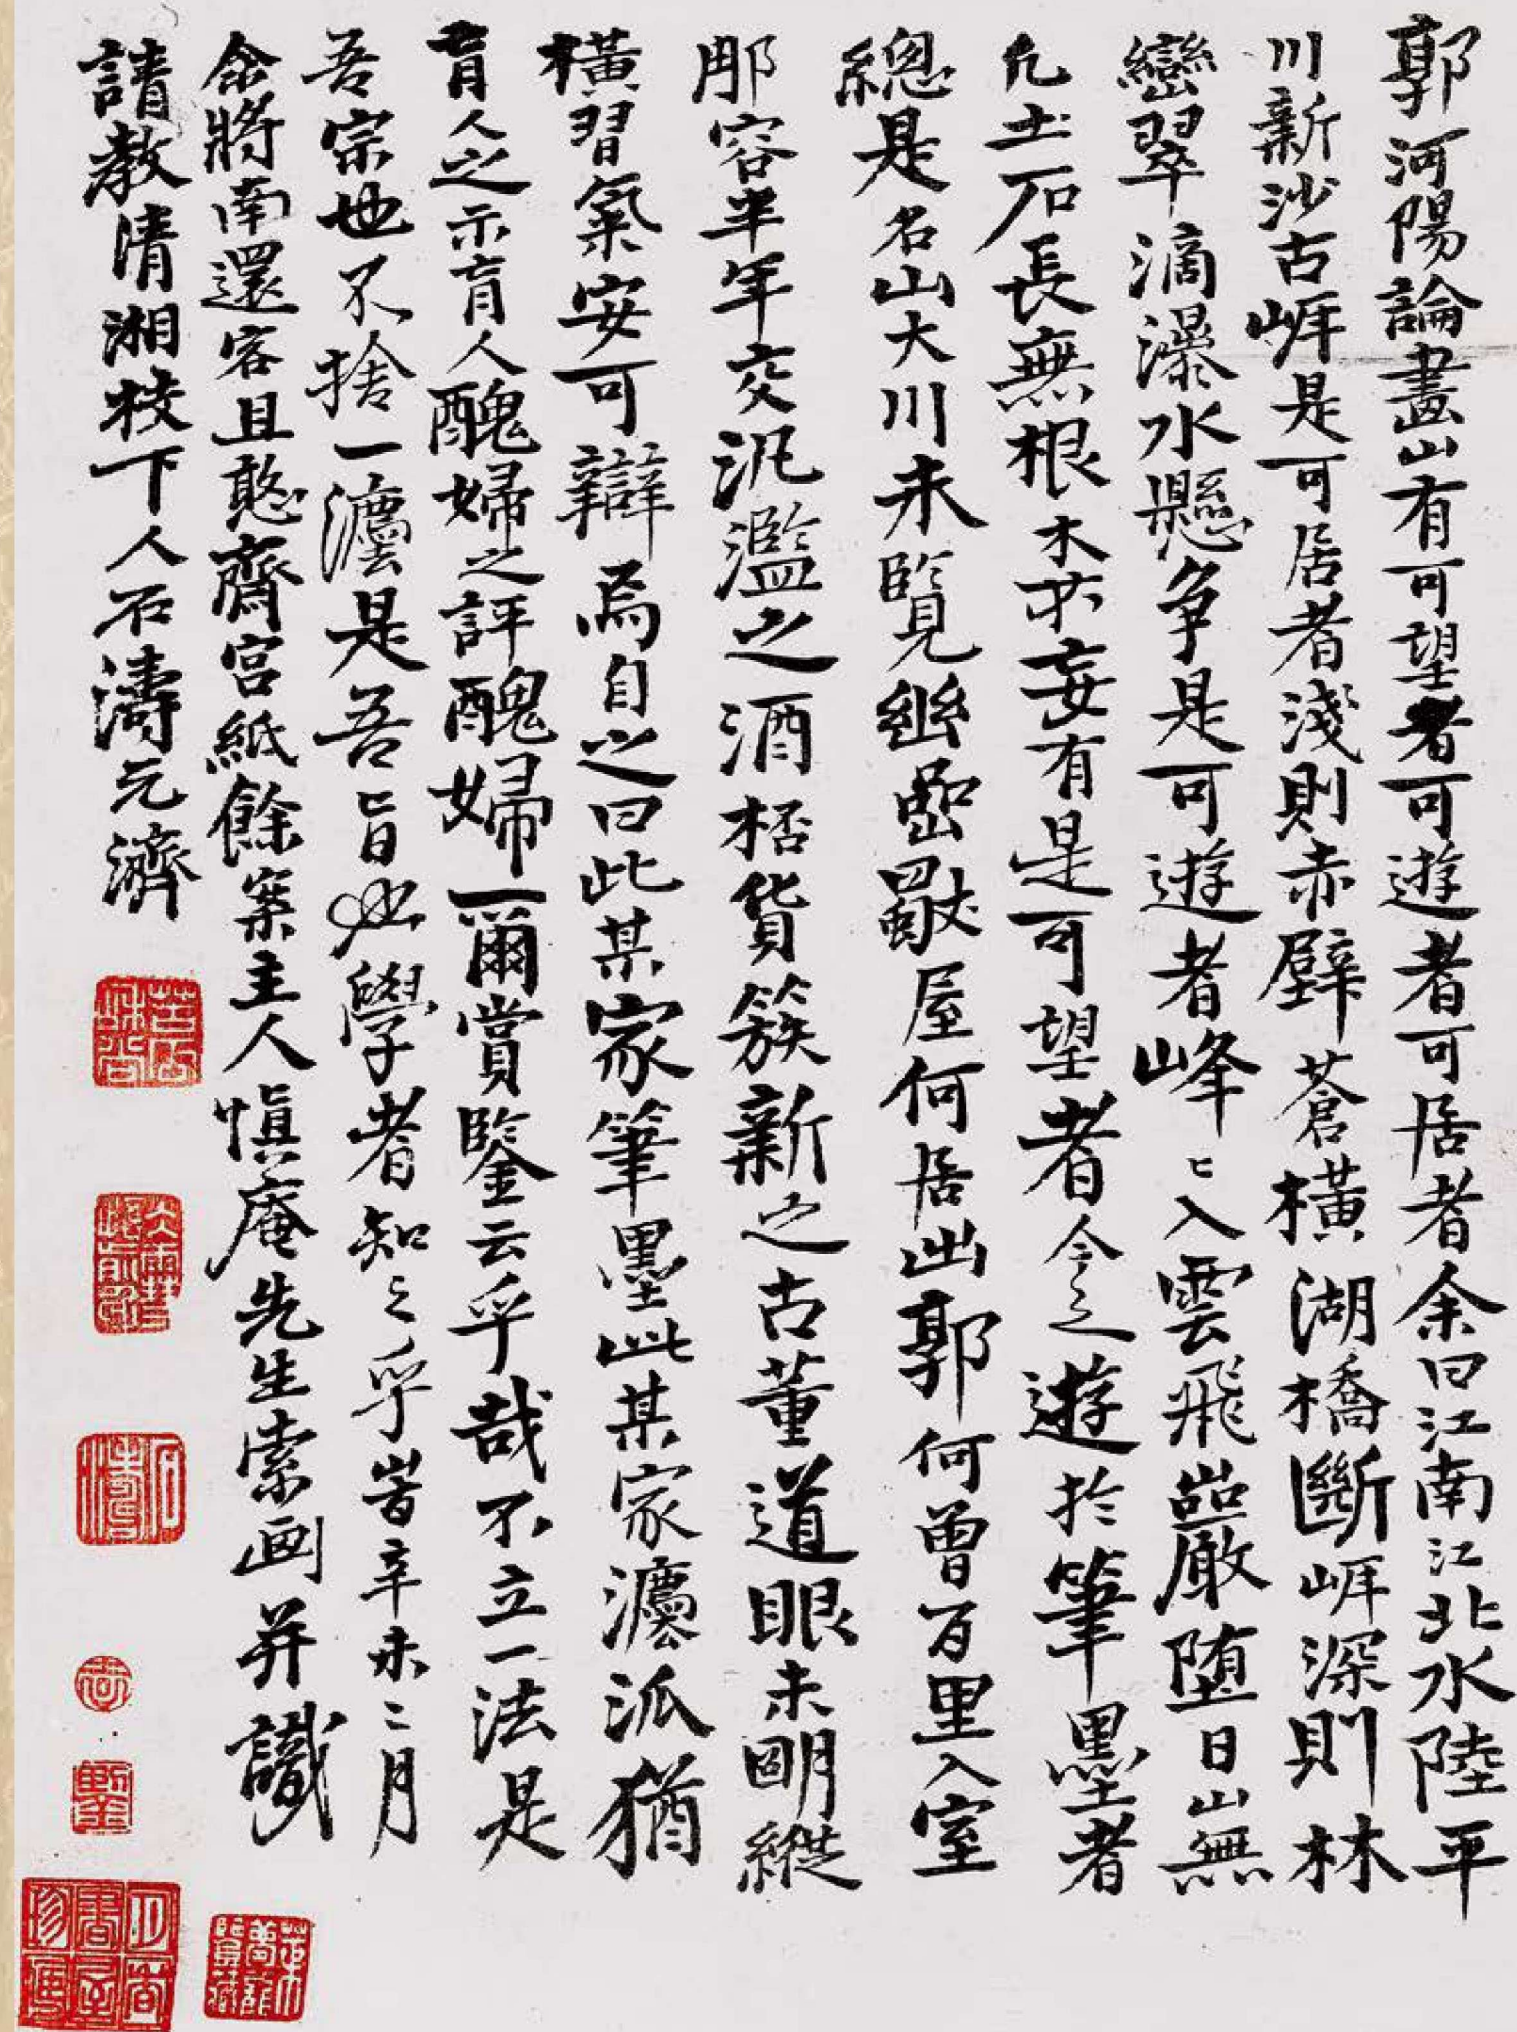 郭河陽論畫山有可望者可遊者可居者余曰江南江北水陸平
川新沙古崕是可居者淺則赤壁蒼橫湖橋斷崕深則林
巒翠滴瀑水懸争是可遊者峰〻入雲飛巖墮日山無
凡土石長無根木不妄有是可望者今之遊於筆墨者
總是名山大川未覽幽巖獨屋何居出郭何曾百里入室
那容半年交汎濫之酒桮貨簇新之古董道眼未明縱
橫習氣安可辯焉自之曰此某家筆墨此某家灋派猶
盲人之示盲人醜婦之評醜婦爾賞鑒云乎哉不立一法是
吾宗也不捨一灋是吾旨也學者知之乎旹辛未二月
余將南還客且憨齋宮紙餘案主人慎庵先生索画并識
請教清湘枝下人石濤元濟
苦瓜和尚
石濤